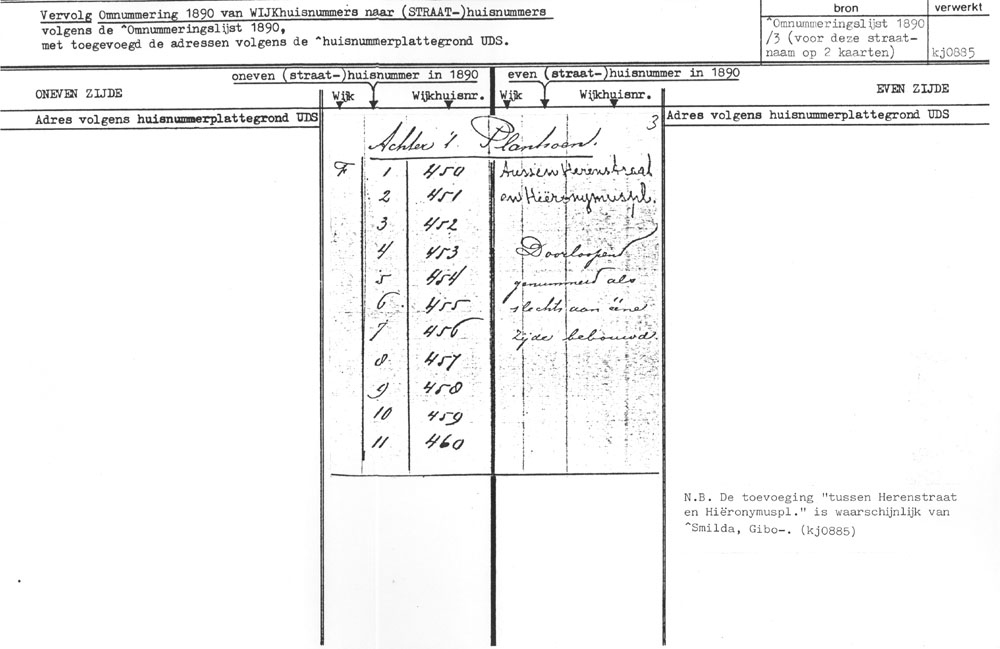 Vervolg Omnummering 1890 van WIJKhuisnummers naar (STRAAT-)huisnummers
volgens de ^Omnummeringslijst 1890,
met toegevoegd de adressen volgens de ^huisnummerplattegrond UDS.
bron
^Omnummeringslijst 1890
/3 (voor deze straat-
naam op 2 kaarten)
verwerkt
kj0885
oneven (straat-)huisnummer in 1890
even (straat-)huisnummer in 1890
ONEVEN ZIJDE
Wijk
Wijkhuisnr.
Wijk
Wijkhuisnr.
EVEN ZIJDE
Adres volgens huisnummerplattegrond UDS
Adres volgens huisnummerplattegrond UDS
3
Achter 't Plantsoen.
F 1 450
2 451
3 452
4 453
5 454
6 455
7 456
8 457
9 458
10 459
11 460
tussen Herenstraat
en Hiëronymuspl.
Doorloopend
genummerd als
slechts aan ééne
zijde bebouwd.
N.B. De toevoeging "tussen Herenstraat
en Hiëronymuspl." is waarschijnlijk van
^Smilda, Gibo-. (kj0885)